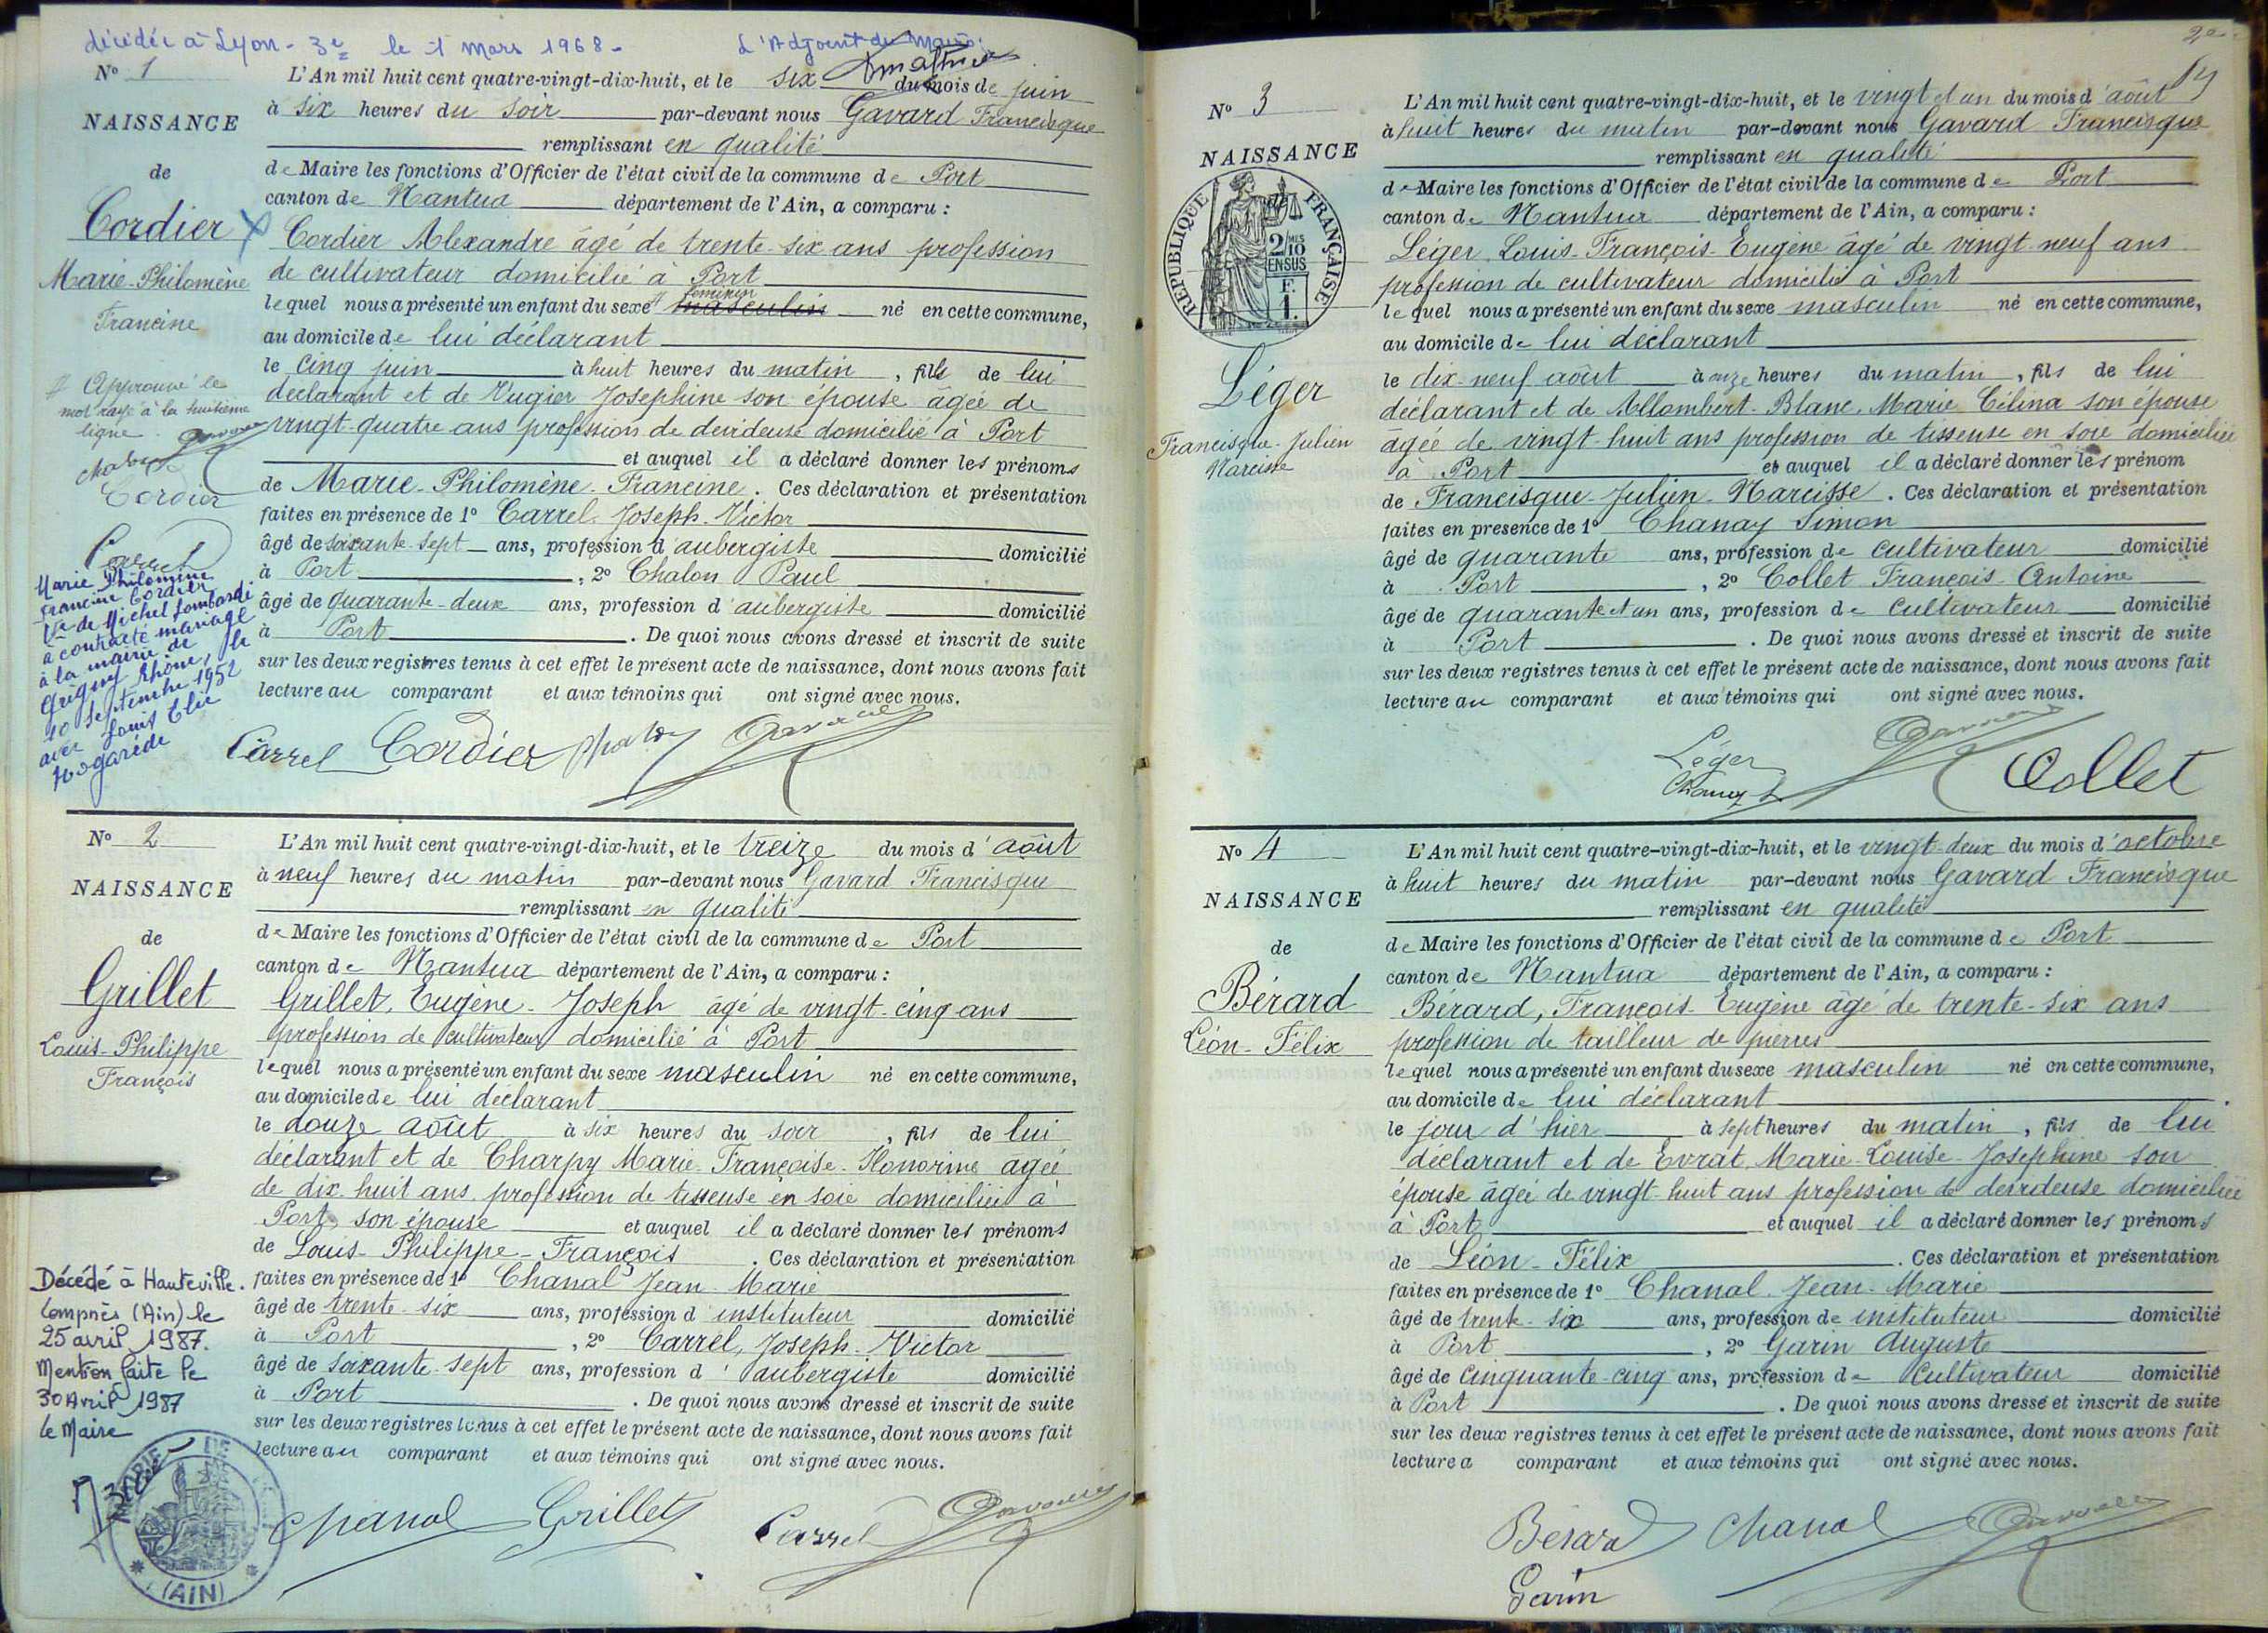 décédée à Lyon - 3e le 1 Mars 1968 -
L'Adjoint du Maire:
N° 1
NAISSANCE
de
Cordier
Marie-Philomène
Francine
Approuvé le
mot rayé à la huitième
ligne.
Cordier
Carrel
Marie Philomène
Francine Cordier
Vve de Michel Lombardi
a contracté mariage
à la mairie de
Grigny Rhône, le
10 septembre 1952
avec Louis Elie
Nogarède
L'An mil huit cent quatre-vingt-dix-huit, et le six du mois de juin
à six heures du soir par-devant nous Gavard Francisque
remplissant en qualité
de Maire les fonctions d'Officier de l'état civil de la commune de Port
canton de Nantua département de l'Ain, a comparu :
Cordier Alexandre âgé de trente-six ans profession
de cultivateur domicilié à Port
lequel nous a présenté un enfant du sexe masculin féminin né en cette commune,
au domicile de lui déclarant
le cinq juin à huit heures du matin, fils de lui
déclarant et de Vugier Josephine son épouse âgée de
vingt-quatre ans profession de devideuse domicilié à Port
et auquel il a déclaré donner les prénoms
de Marie-Philomène-Francine. Ces déclaration et présentation
faites en présence de 1° Carrel Joseph-Victor
âgé de soixante-sept ans, profession d'aubergiste domicilié
à Port, 2° Chalon Paul
âgé de quarante-deux ans, profession d'aubergiste domicilié
à Port. De quoi nous avons dressé et inscrit de suite
sur les deux registres tenus à cet effet le présent acte de naissance, dont nous avons fait
lecture au comparant et aux témoins qui ont signé avec nous.
Carrel Cordier
N° 2
NAISSANCE
de
Grillet
Louis-Philippe
François
Décédé à Hauteville.
Lompnès (Ain) le
25 avril 1987.
Mention faite le
30 Avril 1987
Le Maire
MAIRIE DE
(AIN)
L'An mil huit cent quatre-vingt-dix-huit, et le treize du mois d'août
à neuf heures du matin par-devant nous Gavard Francisque
remplissant en qualité
de Maire les fonctions d'Officier de l'état civil de la commune de Port
canton de Nantua département de l'Ain, a comparu :
Grillet, Eugène-Joseph âgé de vingt-cinq ans
profession de cultivateur domicilié à Port
lequel nous a présenté un enfant du sexe masculin né en cette commune,
au domicile de lui déclarant
le douze août à six heures du soir, fils de lui
déclarant et de Charpy Marie-Françoise-Honorine agée
de dix huit ans profession de tisseuse en soie domiciliée à
Port, son épouse et auquel il a déclaré donner les prénoms
de Louis-Philippe-François. Ces déclaration et présentation
faites en présence de 1° Chanal Jean-Marie
âgé de trente-six ans, profession d'instituteur domicilié
à Port, 2° Carrel, Joseph-Victor
âgé de soixante-sept ans, profession d'aubergiste domicilié
à Port. De quoi nous avons dressé et inscrit de suite
sur les deux registres tenus à cet effet le présent acte de naissance, dont nous avons fait
lecture au comparant et aux témoins qui ont signé avec nous.
Chanal Grillet Carrel
N° 3
NAISSANCE
RÉPUBLIQUE FRANÇAISE
2/10
EN SUS
F.
1.
Léger
Francisque-Julien
Narcisse
L'An mil huit cent quatre-vingt-dix-huit, et le vingt et un du mois d'août
à huit heures du matin par-devant nous Gavard Francisque
remplissant en qualité
de Maire les fonctions d'Officier de l'état civil de la commune de Port
canton de Nantua département de l'Ain, a comparu :
Léger Louis-François-Eugène âgé de vingt-neuf ans
profession de cultivateur domicilié à Port
lequel nous a présenté un enfant du sexe masculin né en cette commune,
au domicile de lui déclarant
le dix-neuf août à onze heures du matin, fils de lui
déclarant et de Allombert-Blanc, Marie Célina son épouse
âgée de vingt-huit ans profession de tisseuse en soie domiciliée
à Port et auquel il a déclaré donner les prénom
de Francisque-Julien-Narcisse. Ces déclaration et présentation
faites en présence de 1° Chanay Simon
âgé de quarante ans, profession de cultivateur domicilié
à Port, 2° Collet François-Antoine
âgé de quarante et un ans, profession de cultivateur domicilié
à Port. De quoi nous avons dressé et inscrit de suite
sur les deux registres tenus à cet effet le présent acte de naissance, dont nous avons fait
lecture au comparant et aux témoins qui ont signé avec nous.
Léger
Chanay
Collet
N° 4
NAISSANCE
de
Bérard
Léon-Félix
L'An mil huit cent quatre-vingt-dix-huit, et le vingt-deux du mois d'octobre
à huit heures du matin par-devant nous Gavard Francisque
remplissant en qualité
de Maire les fonctions d'Officier de l'état civil de la commune de Port
canton de Nantua département de l'Ain, a comparu :
Bérard, François-Eugène âgé de trente-six ans
profession de tailleur de pierres
lequel nous a présenté un enfant du sexe masculin né en cette commune,
au domicile de lui déclarant
le jour d'hier à sept heures du matin, fils de lui
déclarant et de Evrat Marie-Louise-Josephine son
épouse âgée de vingt-huit ans profession de devideuse domiciliée
à Port et auquel il a déclaré donner les prénoms
de Léon-Félix. Ces déclaration et présentation
faites en présence de 1° Chanal Jean-Marie
âgé de trente-six ans, profession de instituteur domicilié
à Port, 2° Garin Auguste
âgé de cinquante-cinq ans, profession de cultivateur domicilié
à Port. De quoi nous avons dressé et inscrit de suite
sur les deux registres tenus à cet effet le présent acte de naissance, dont nous avons fait
lecture a comparant et aux témoins qui ont signé avec nous.
Bérard Chanal
Garin